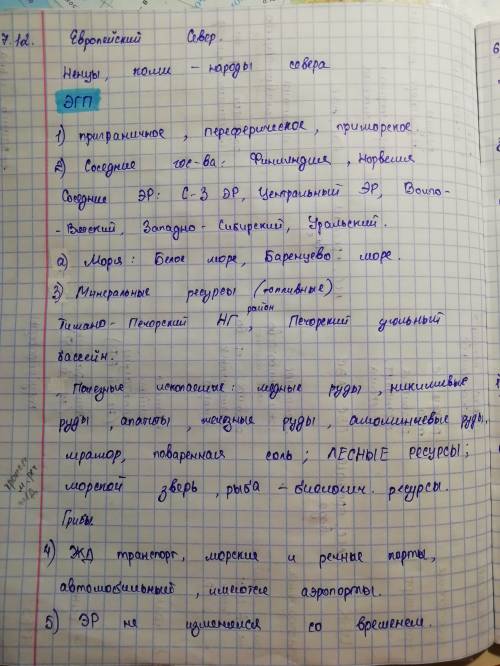 7.12. Европейский Север.
Ненцы, коми - народы севера
ЭГП
1) приграничное, переферическое, приморское.
2) Соседние гос-ва: Финляндия, Норвегия
Соседние ЭР: С-З ЭР, Центральный ЭР, Волго-
-Вятский, Западно-Сибирский, Уральский.
а) Моря: Белое море, Баренцево море.
3) Минеральные ресурсы (топливные)
Тимано-Печорский НГ район, Печорский угольный
бассейн.
Полезные ископаемые: медные руды, никилиевые
руды, апатиты, железные руды, алюминиевые руды,
мрамор, поваренная соль; ЛЕСНЫЕ РЕСУРСЫ;
морской зверь, рыба - биологич. ресурсы.
Грибы
4) ЖД транспорт, морские и речные порты,
автомобильный, имеются аэропорты.
5) ЭР не изменялся со временем.